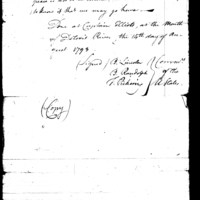 to know if that we may go home
Done at Captain Elliot's, at the Mouth
of Detroit River, the 16th day of Au-
gust. 1793.
(Signed) B. Lincoln } Commrs
B. Randolph } of the
T. Pickering } U. States
(Copy)